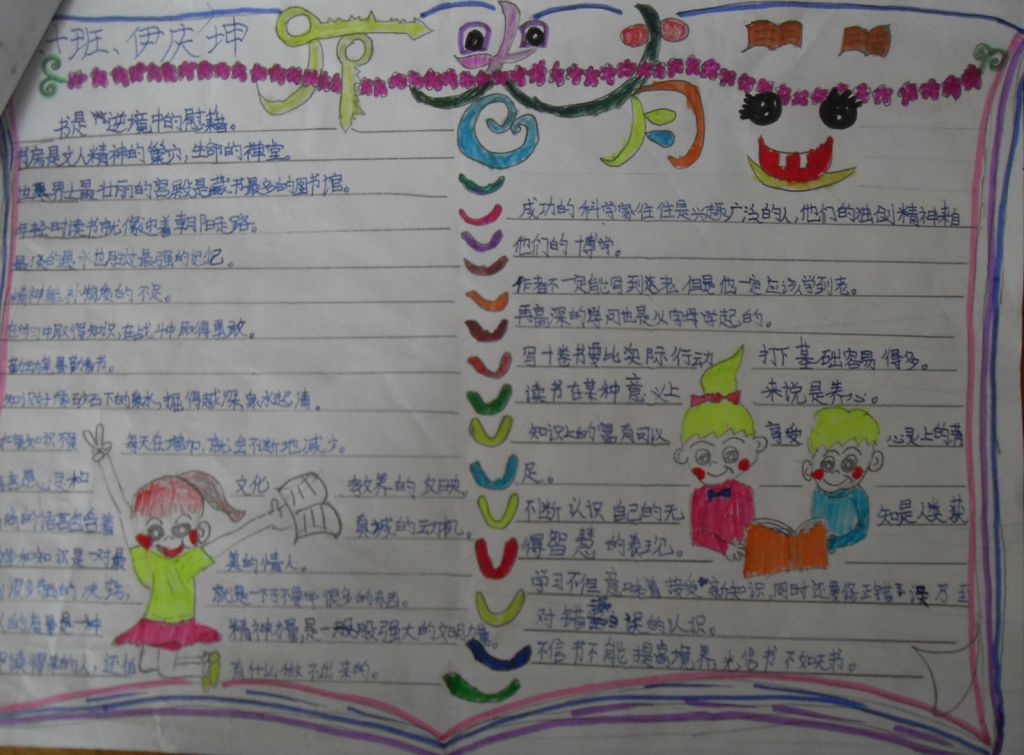 班、伊庆坤
书是逆境中的慰藉。
书房是文人精神的巢穴,生命的禅堂。
世界上最壮丽的宫殿是藏书最多的图书馆。
年轻时读书就像迎着朝阳走路。
最淡的墨水也胜过最强的记忆。
精神能补物质的不足。
中取得知识,在战斗中取得勇敢。
知识好像砂石下的泉水,掘得越深泉水越清。
如果知识不 每天在增加,就会不断地减少。
心灵和 文化 教养的反映。
的语言包含着 真诚的动机。
和知识是一对最 美的情人。
很多东西的决窍, 就是一下子不要学很多的东西。
的质量是一种 精神力量,是一股股强大的文明力量。
读得来的人,还怕 有什么做不出来的。
成功的科学家往往是兴趣广泛的人,他们的独创精神来自
他们的博学。
作者不一定能写到老,但是他一定应该学到老。
再高深的学问也是从字母学起的。
写十卷书要比实际行动 打下基础容易得多。
读书在某种意义上 来说是养心。
知识上的富有可以 享受 心灵上的满
足。
不断认识自己的无 知是人类获
得智慧的表现。
学习不但意味着接受新知识,同时还要修正错误乃至
对错误的认识。
不信书不能提高境界,光信书不如无书。